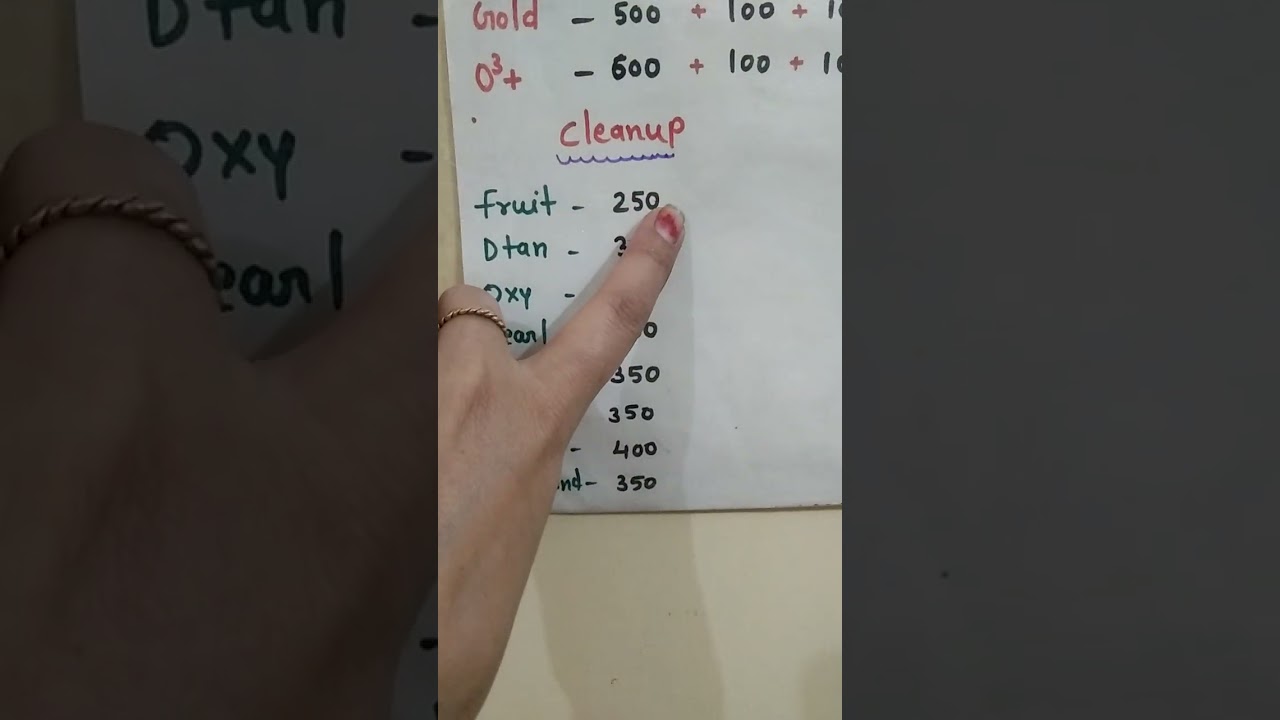 Gold - 500 + 100 + 
O³+ - 600 + 100 + 
Cleanup
fruit - 250
Dtan -
Oxy -
earl
350
350
- 400
nd- 350